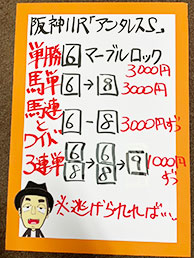 阪神11R「アンタレスS」
単勝 6 マーブルロック 3000円
馬単 6→8 3000円
馬連とワイド 6-8 3000円ずつ
3連単 6/8→6/8→9 1000円ずつ
※逃げられれば…